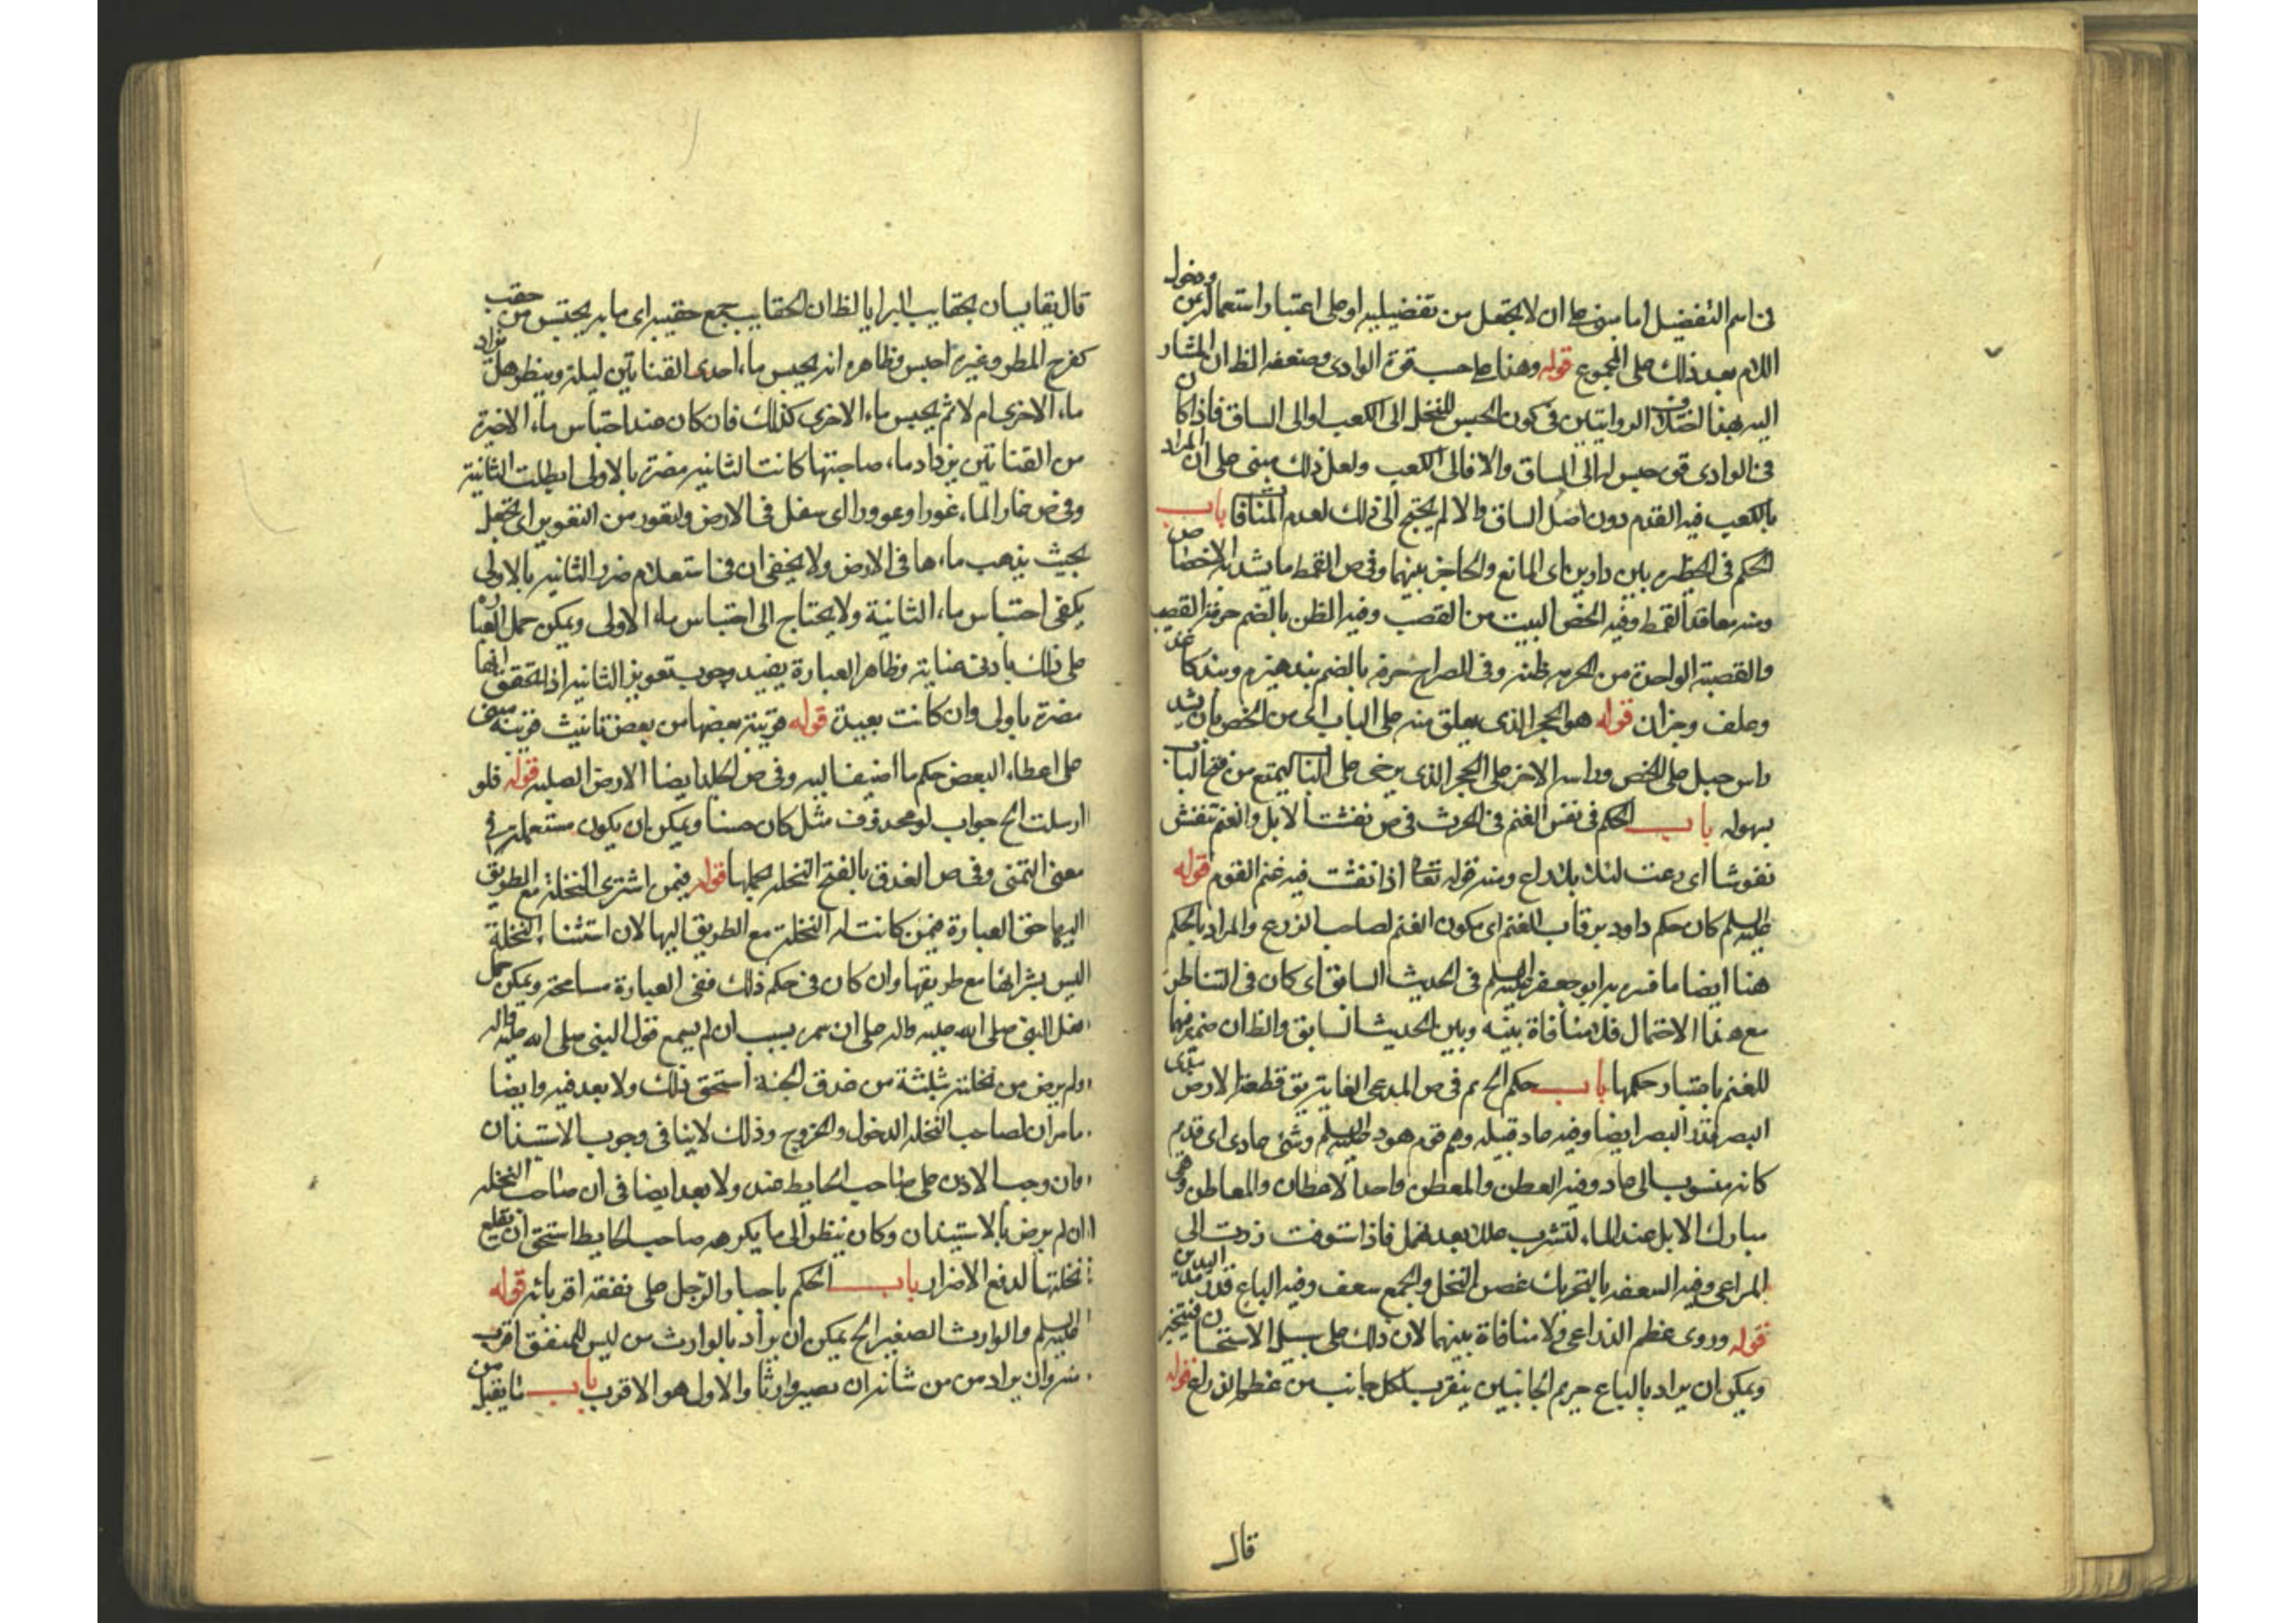 فى اسم التفضيل اما سوف على ان لا يجعل من تفضيليه او على اعتبار استعماله بمن ودخول
اللام بعد ذلك على المجموع قوله وهنا على حسب قوة الوادى وضعفه الظ ان المشار
اليه بهنا اختلاف الروايتين فى كون الحبس للنخل الى الكعب او الى الساق فاذا كان
فى الوادى قوى حبس له الى الساق والا فالى الكعب ولعل ذلك مبنى على ان المراد
بالكعب فيه القدم دون اصل الساق والا لم يحتج الى ذلك لعدم المنافات باب
الحكم فى الحظيره بين دارين اى المانع والحاجز بينهما وفى ص القمط ما يشد به الاخصاص
ومنه معاقد القمط وفيه الخص البيت من القصب وفيه الظن بالضم حزمة القصب
والقصبة الواحدة من الحزمه ظنه وفى الصراح حزمه بالضم بند هيزم وبند كاغذ
وعلف وجزان قوله هو الحجر الذى يعلق منه على الباب اى من الخص بان يشد
راس حبل على الخص وراسه الاخر على الحجر الذى يرخى على الباب ليمتنع من فتح الباب
بسهوله باب الحكم فى نفس الغنم فى الحرث فى ص نفشت الابل والغنم تنفش
نفوشا اى رعت ليلا بلا راع ومنه قوله تعا اذا نفشت فيه غنم القوم قوله
عليه السلم كان حكم داود برقاب الغنم اى يكون الغنم لصاحب الزرع والمراد بالحكم
هنا ايضا ما فسره به ابو جعفر عليه السلم فى الحديث السابق اى كان فى التناطر
مع هذا الاحتمال فلا منافاة بينه وبين الحديث السابق والظ ان ضمير فيها
للغنم باعتبار حكمها باب حكم الحريم فى ص المدى الغاية يق قطعة الارض مدى
البصر قدر البصر ايضا وفيه عاد قبيله وهم قوم هود عليه السلم وشئ عادى اى قديم
كانه منسوب الى عاد وفيه العطن والمعطن واحد الاعطان والمعاطن وهى
مبارك الابل عند الماء لتشرب عللا بعد نهل فاذا استوفت زدت الى
المراعى وفيه السعفه بالتحريك غصن النخل والجمع سعف وفيه الباع قدر مد اليدين
قوله وروى عظم الذراعى ولا منافاة بينهما لان ذلك على سبيل الاستحبان فيتخير
ويمكن ان يراد بالباع حريم الجانبين يتقرب لكل جانب من عظم الذراع قوله
قال
قال يقايسان بحقايب البرايا الظ ان الحقايب جمع حقيبه اى ما به يحتبس من حقب
كفرح المطر وغيره احبس وظاهره انه يحبس ماء احدى القناتين ليلة وينظر هل يزاد
ماء الاخرى ام لا ثم يحبس ماء الاخرى كذلك فان كان عند احتباس ماء الاخيرة
من القناتين يزداد ماء صاحبتها كانت الثانيه مضرة بالاولى ابطلت الثانية
وفى ص غار الماء غورا وغوورا اى سفل فى الارض وتغور من التغوير اى يجعل
بحيث يذهب ماءها فى الارض ولا يخفى ان فى استعلام ضرر الثانيه بالاولى
يكفى احتباس ماء الثانية ولا يحتاج الى احتباس ماء الاولى ويمكن حمل العباره
على ذلك بادنى عناية وظاهر العبارة يفيد وجوب تعوير الثانيه اذا تحقق انها
مضرة باولى وان كانت بعيدة قوله قريبة بعضها من بعض تانيث قريبة مبنى
على اعطاء البعض حكم ما اضيف اليه وفى ص الجلد ايضا الارض الصلبه قوله فلو
ارسلت الخ جواب لو محذوف مثل كان حسنا ويمكن ان يكون مستعملة فى
معنى التمنى وفى ص العذق بالفتح النخله بحملها قوله فيمن اشترى النخلة مع الطريق
اليها حق العبارة فيمن كانت له النخلة مع الطريق اليها لان استثناء النخلة
ليس بشرائها مع طريقها وان كان فى حكم ذلك ففى العبارة مسامحة ويمكن حمل
فعل النبى صلى الله عليه واله على ان سمره بسبب ان لم يسمع قول النبى صلى الله عليه واله
ولم يرض من نخلته بثلثة من عذق الجنة استحق ذلك ولا بعد فيه وايضا
ما مر ان لصاحب النخله الدخول والخروج وذلك لا ينافى وجوب الاستيذان
وان وجب الاذن على صاحب الحايط عنده ولا بعد ايضا فى ان صاحب النخله
ان لم يرض بالاستيذان وكان ينظر الى ما يكرهه صاحب الحايط استحق ان يقلع
نخلتها لدفع الاضرار باب الحكم باجبار الرجل على نفقه اقربائه قوله
عليه السلم والوارث الصغير الخ يمكن ان يراد بالوارث من ليس للمنفق اقرب
منه وان يراد من من شانه ان يصير وارثا والاول هو الاقرب باب ما يقبل من